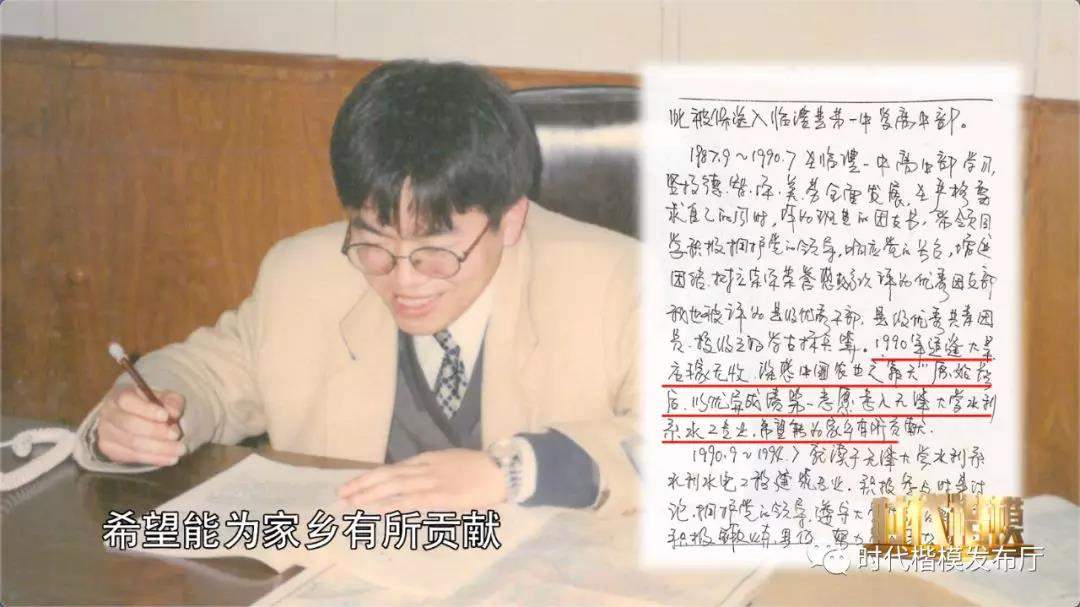 此被保送入临澧县第一中学高中部。
1987.9～1990.7在临澧一中高中部学习,
坚持德.智.体.美.劳全面发展,在严格要
求自己的同时,作为班里的团支书,带领同
学积极拥护党的领导,响应党的号召,增进
团结.树立集体荣誉感 评为优秀团支部
我也被评为县级优秀干部,县级优秀共青团
员. 1990年适逢大旱
庄稼无收.深感中国农业之"靠天"原始落
后.以优异成绩第一志愿考入天津大学水利
系水工专业.希望能为家乡有所贡献.
1990.9～1994.7就读于天津大学水利系
水利水电工程建筑专业.积极参与时事讨
论.拥护党的领导.遵守大
积极
希望能为家乡有所贡献
时代楷模
时代楷模发布厅